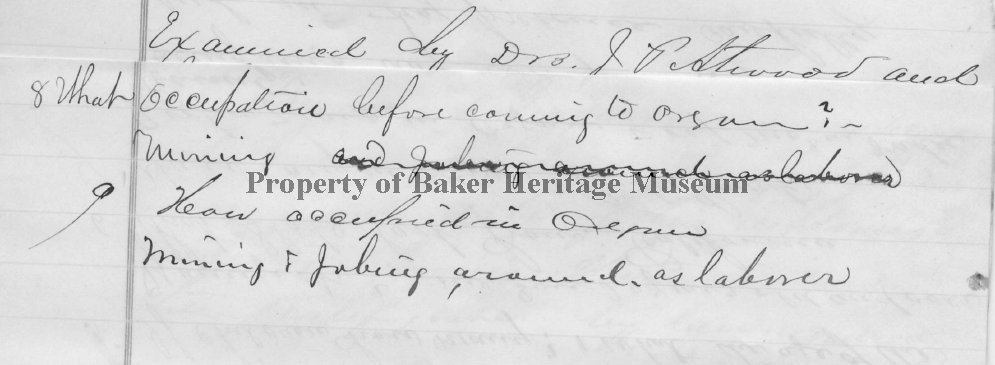 Examined by Drs. J P Atwood and
8 What Occupation before coming to Oregon?
Mining and Jobing around as laborer
Property of Baker Heritage Museum
9 How occupied in Oregon
Mining & Jobing around. as laborer